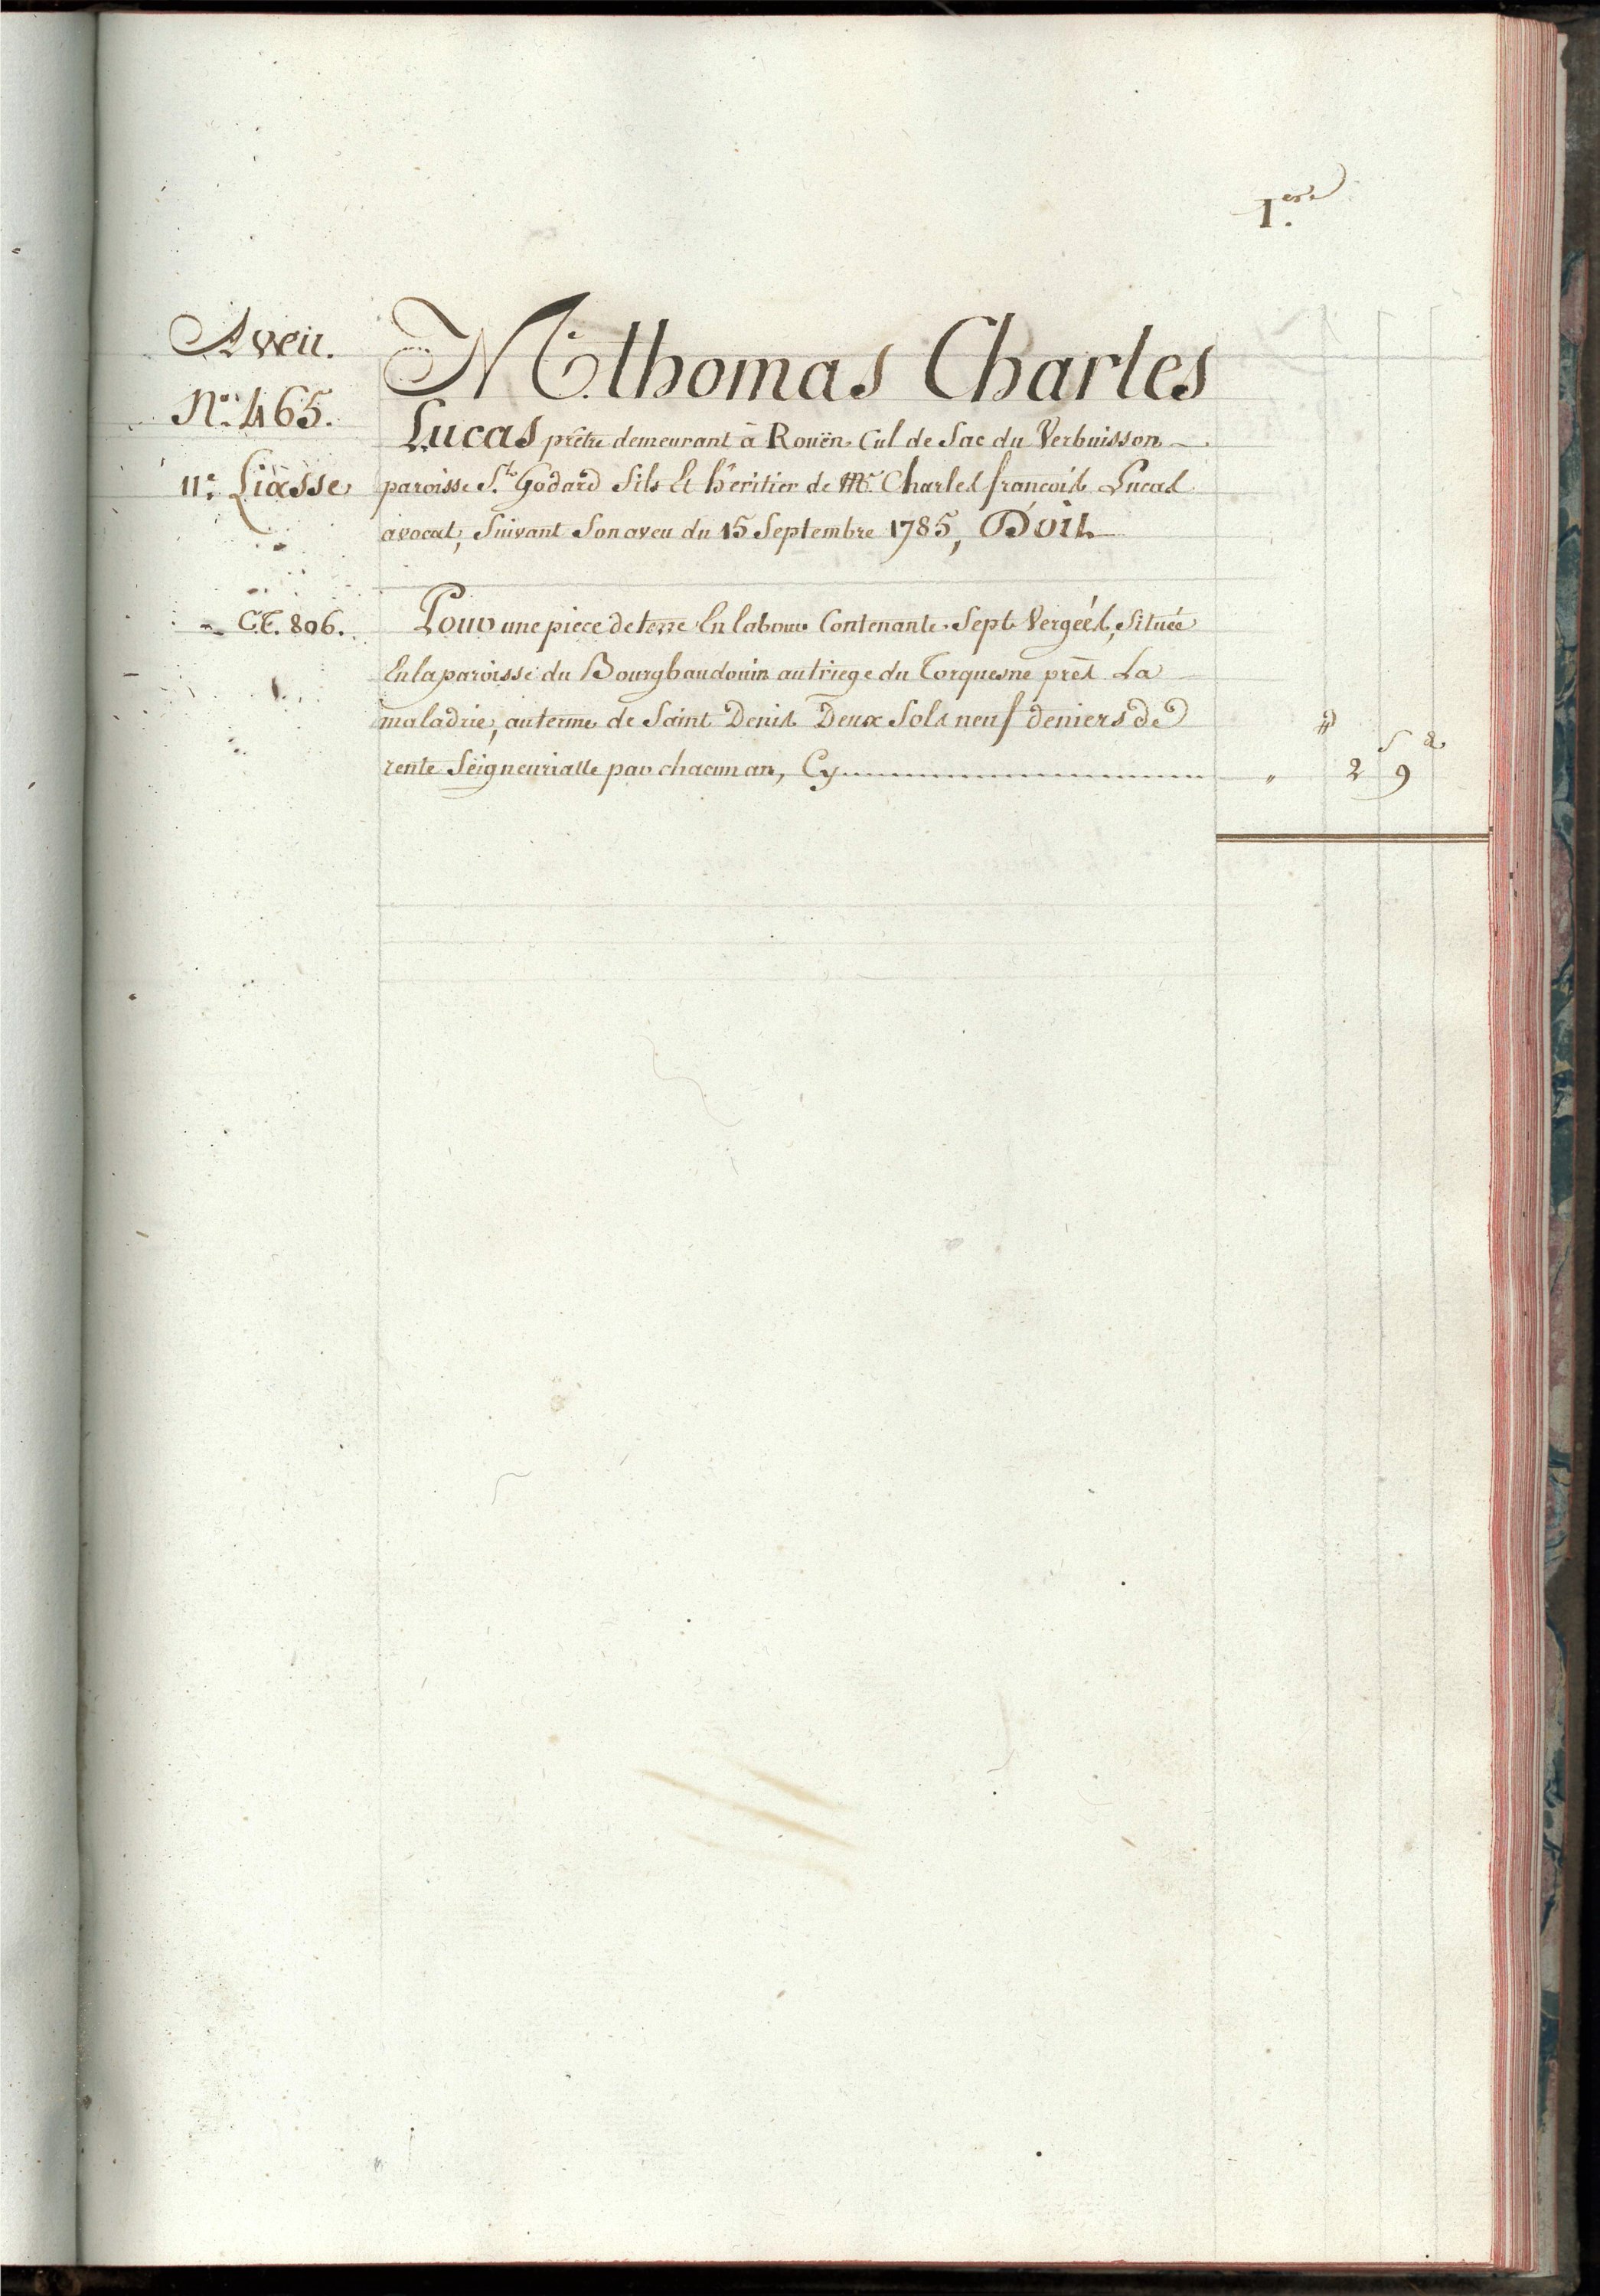 1.ere
Aveu.
N.o 465.
11.e Liasse
M. thomas Charles
Lucas prêtre demeurant à Rouën Cul de Sac du Verbuisson
paroisse S.t Godard fils Et héritier de M.e Charles françois Lucas
avocat, Suivant Son aveu du 15 Septembre 1785, Doit
C.T. 806.
Pour une piece de terre En labour Contenante Sept Vergeés, Située
En la paroisse du Bourgbaudouin au triege du Torquesne près La
maladrie, au terme de Saint Denis Deux Sols neuf deniers de
rente Seigneurialle par chacun an, Cy
₶ s d
" 2 9